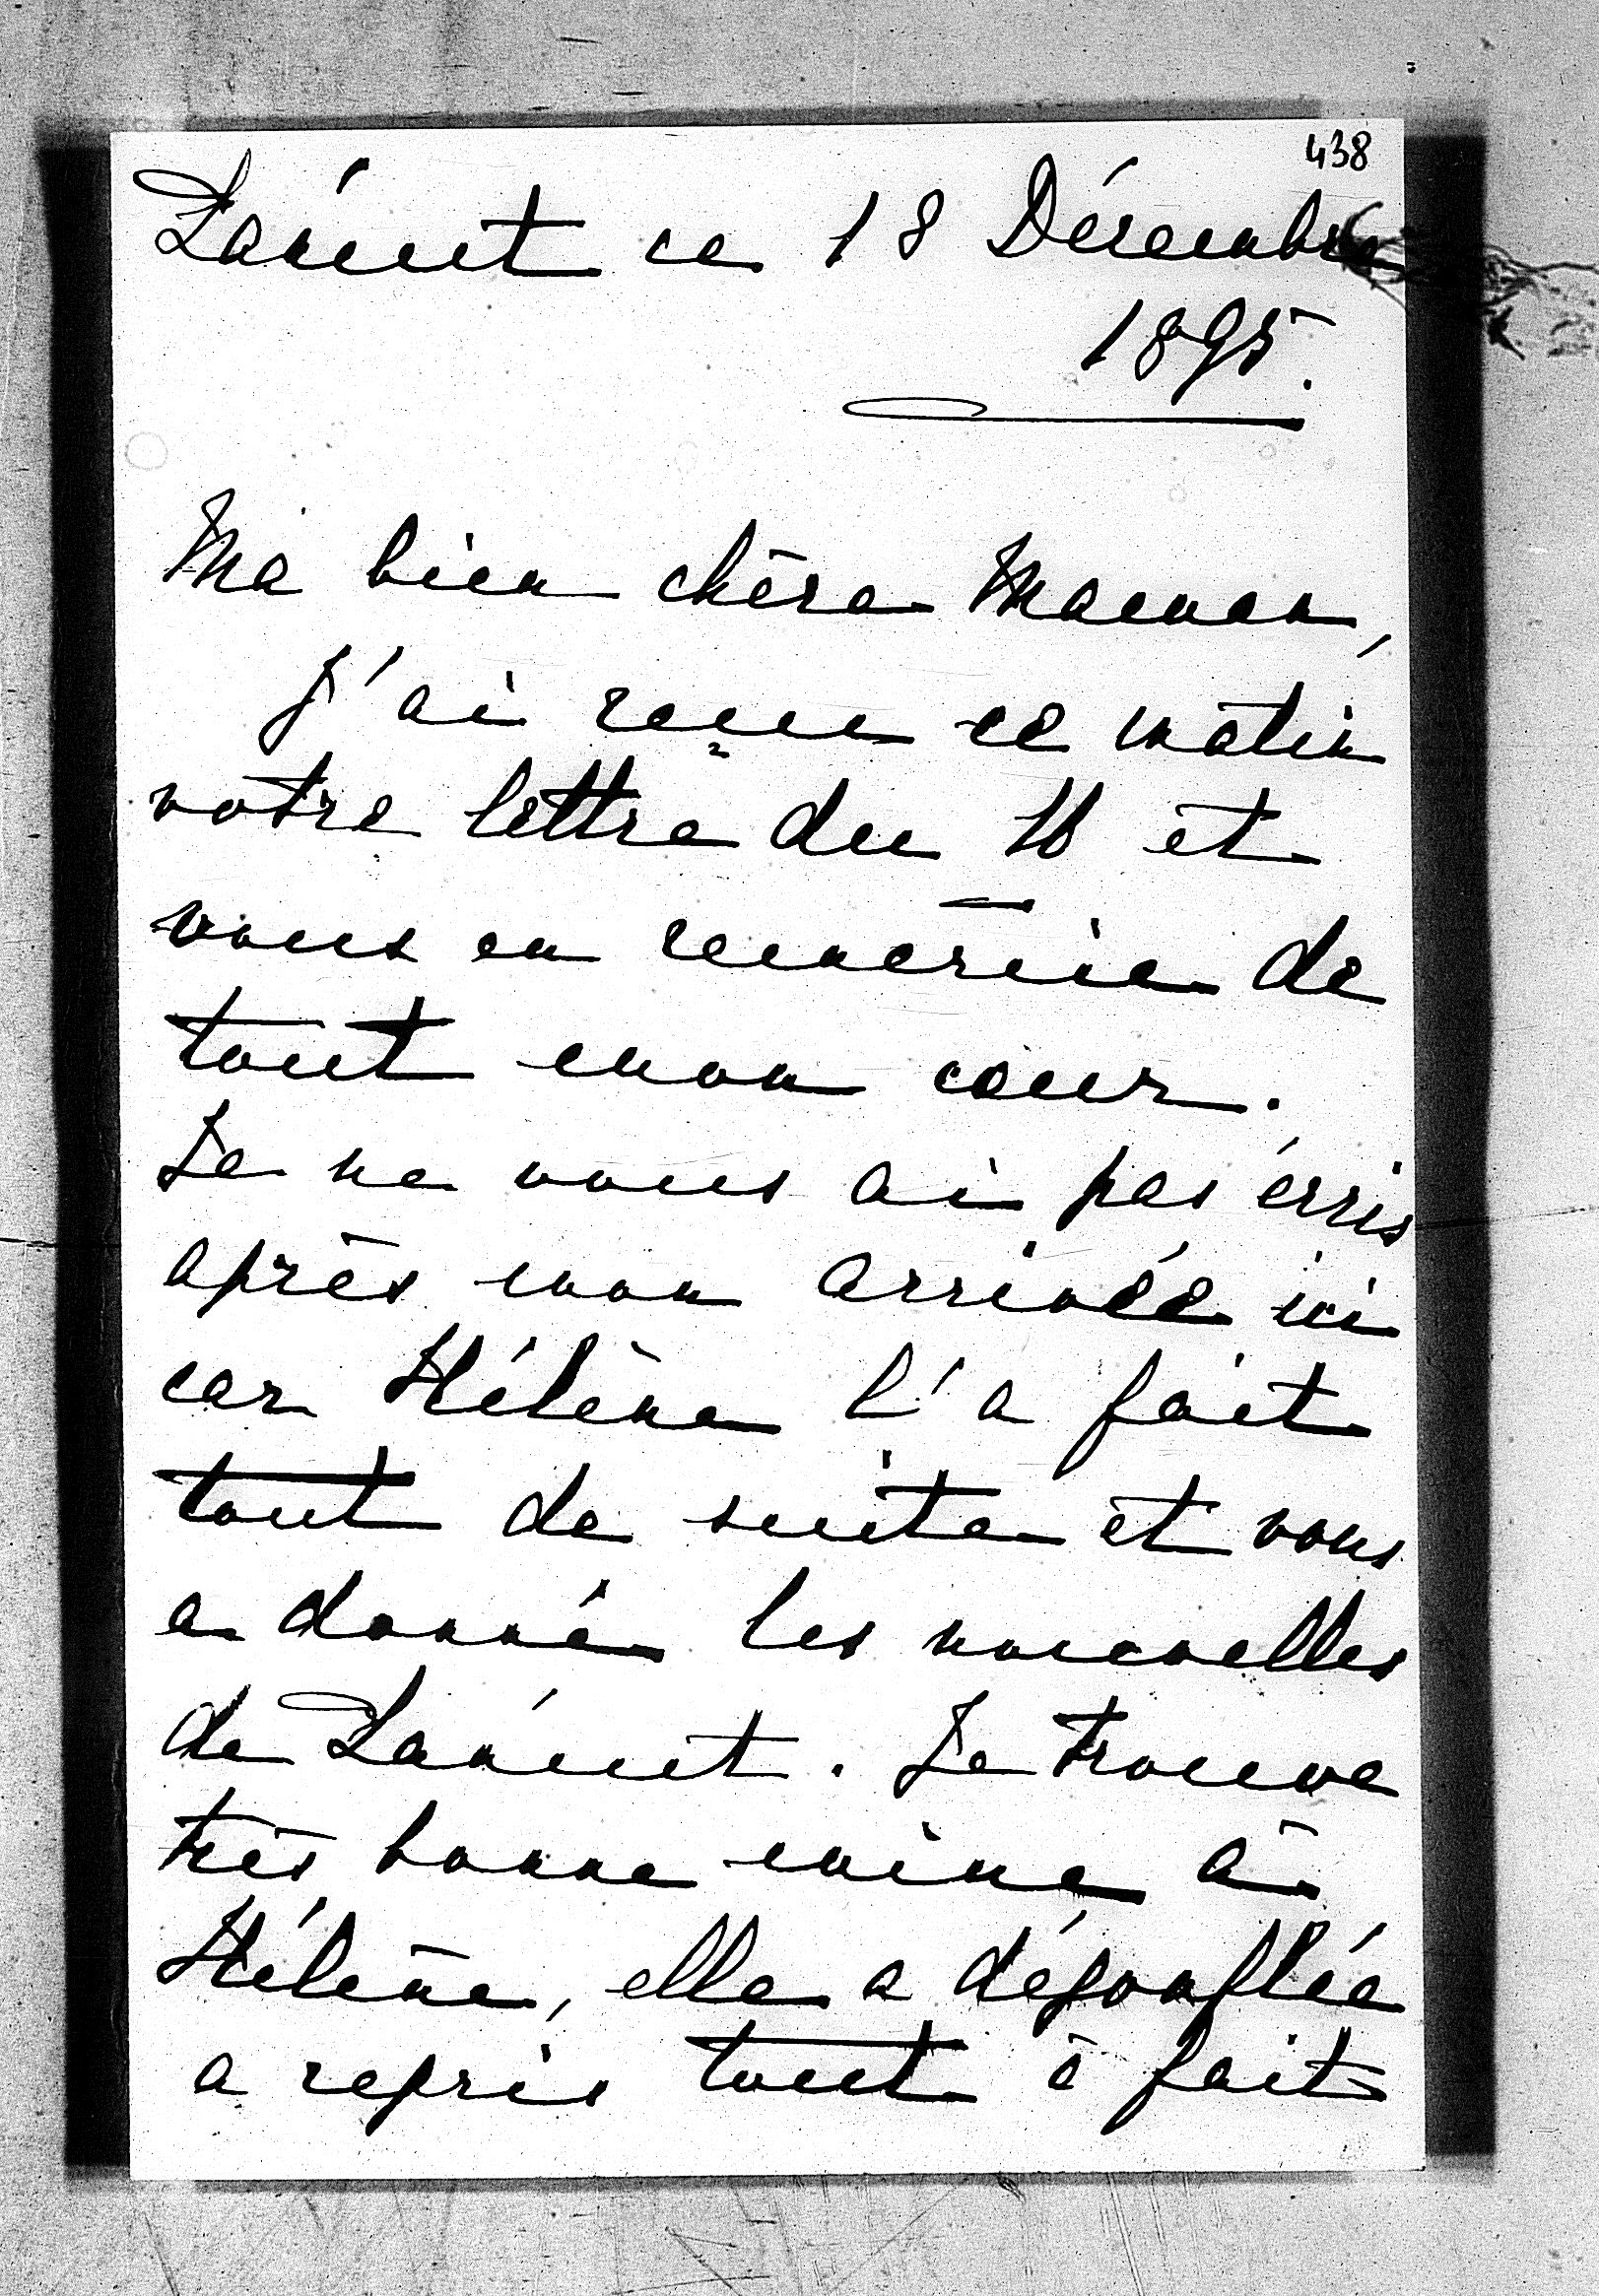 438
Łańcut ce 18 Décembre
1895.
Ma bien chère Maman,
J'ai reçue ce matin
votre lettre du 16 et
vous en remercie de
tout mon cœur.
Je ne vous ai pas écris
après mon arrivée ici
car Hélène l'a fait
tout de suite et vous
a donné les nouvelles
de Łańcut. Je trouve
très bonne mine à
Hélène, elle a dégonflée
a repris tout à fait